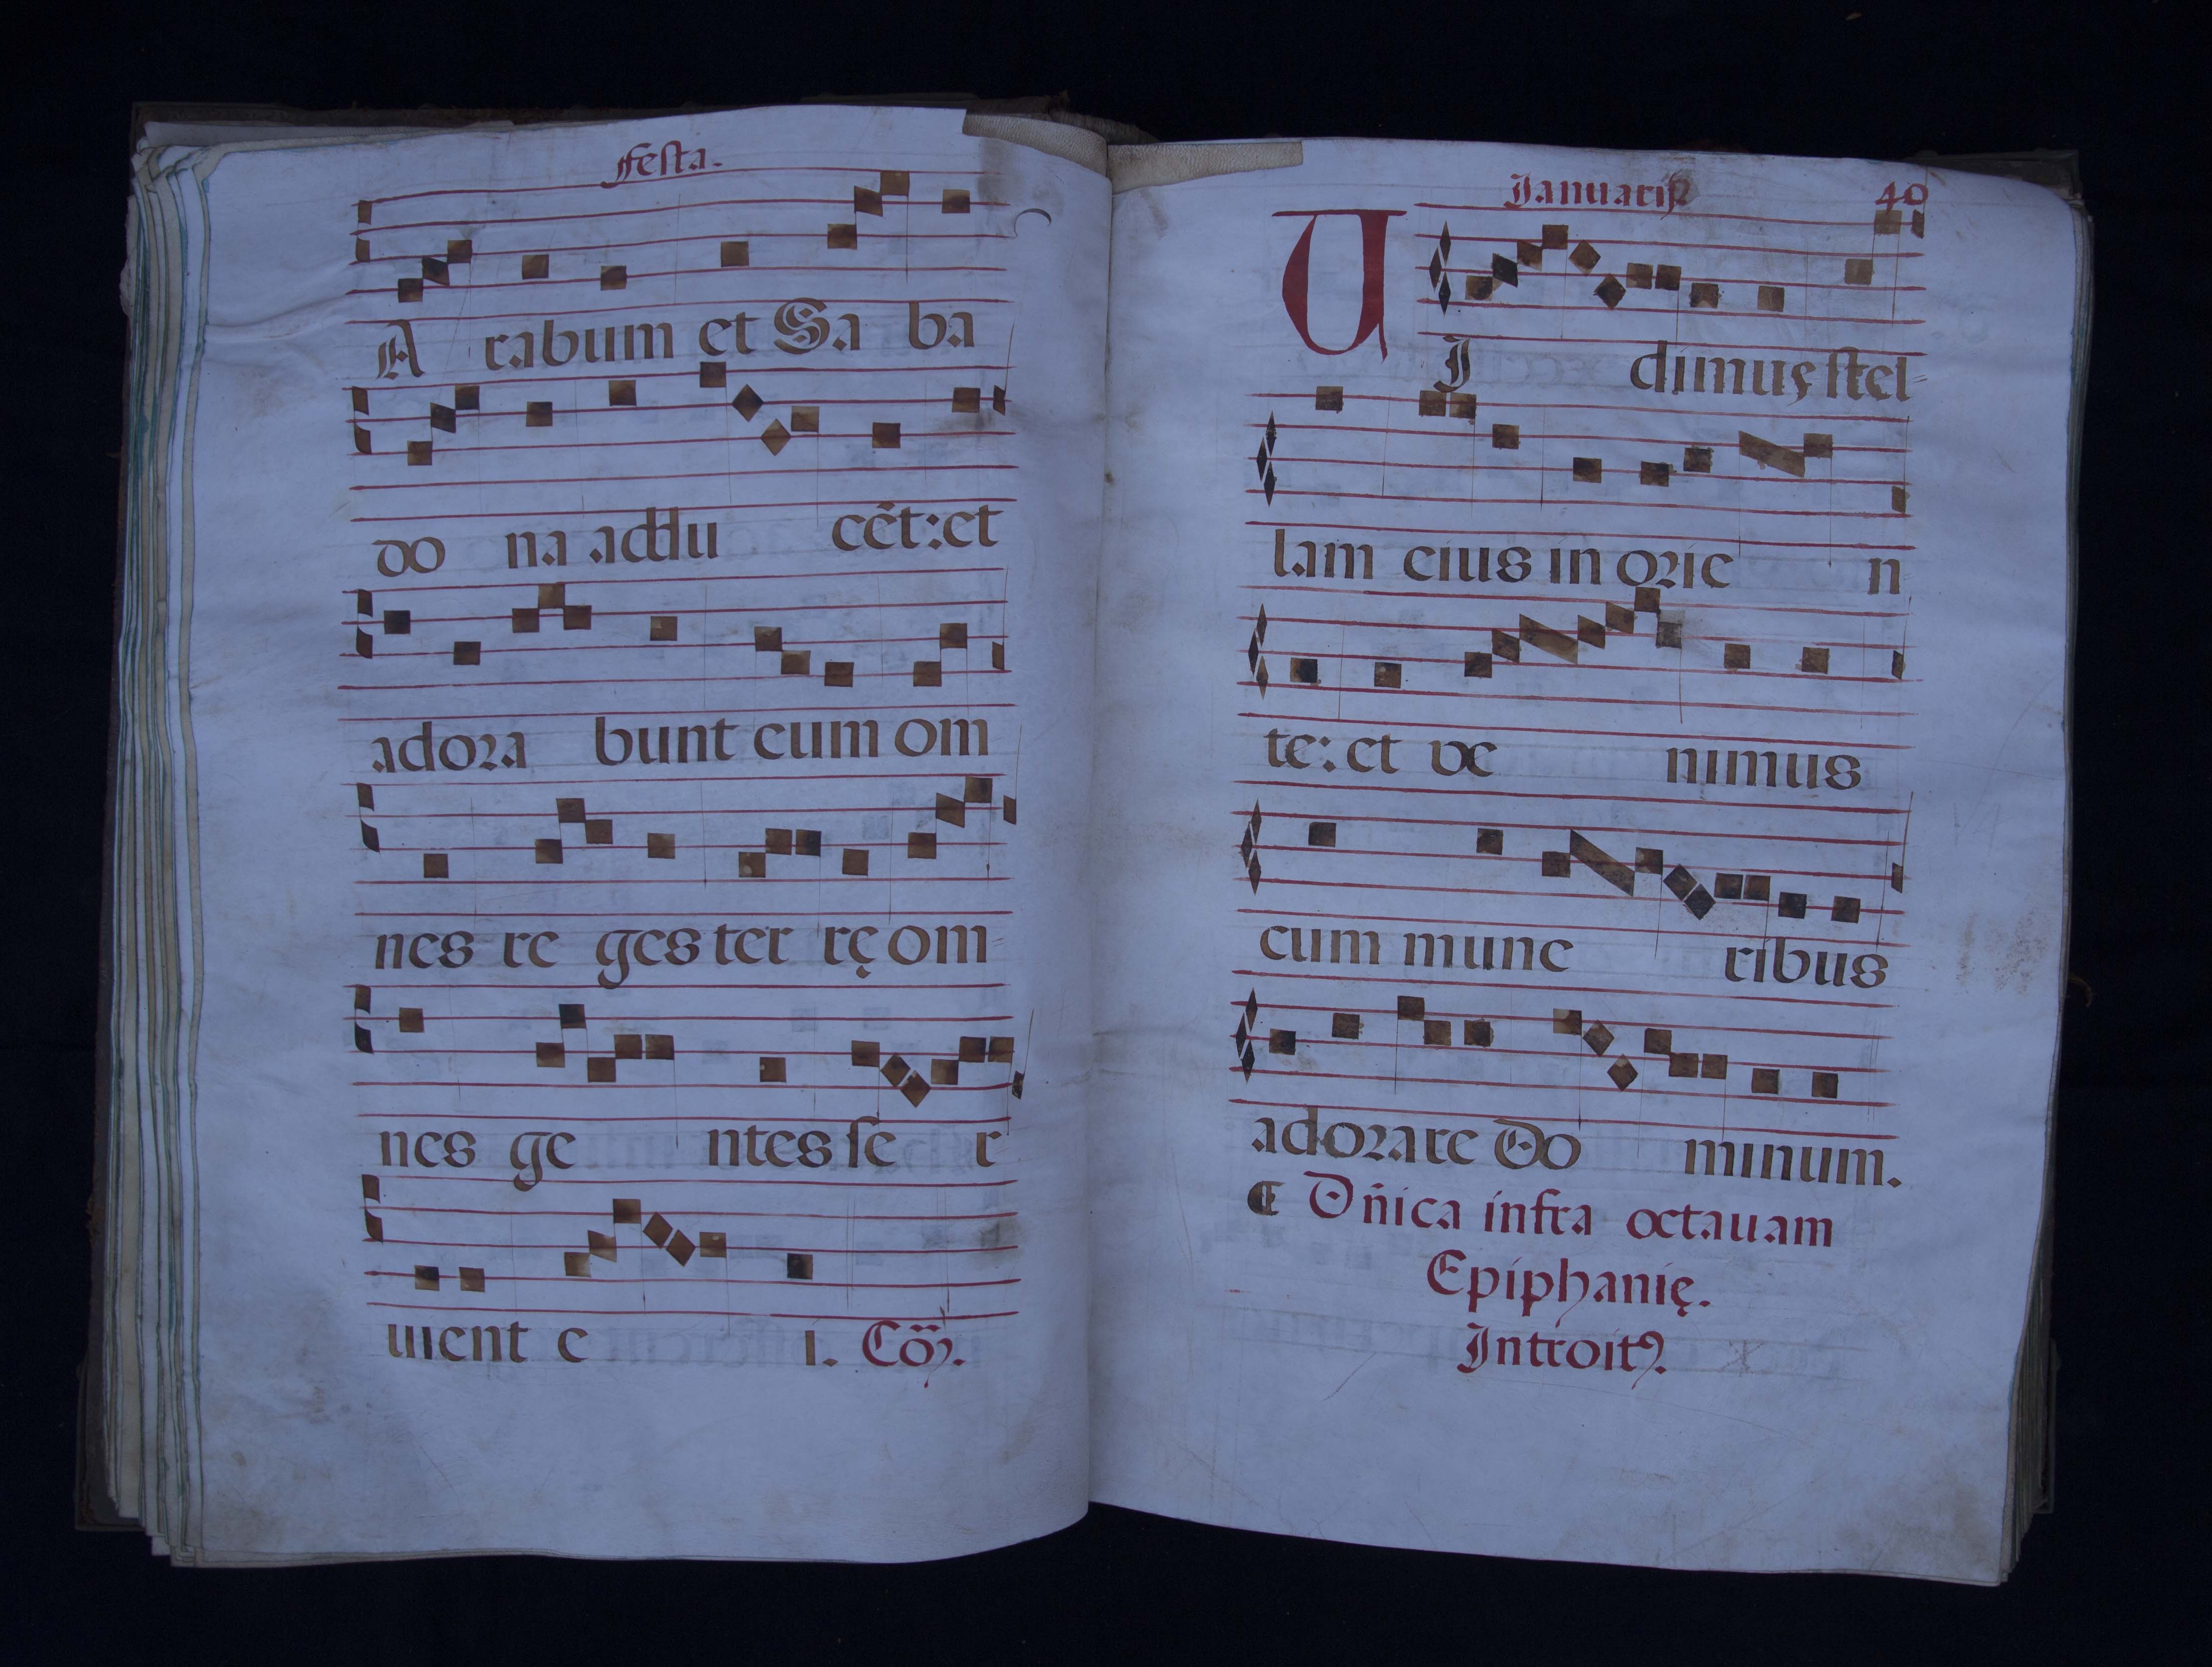 Festa.
A rabum et Sa ba
do na addu cēt: et
adora bunt cum om
nes re ges ter rę om
nes ge ntes se r
uient e i. Cōᷤ.
Ianuarij 40
U I dimus stel
lam eius in orie n
te: et ve nimus
cum mune ribus
adorare Do minum.
Dñica infra octauam
Epiphanię.
Introitꝰ.